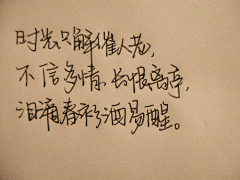 时光只解催人老,
不信多情,长恨离亭,
泪滴春衫酒易醒。